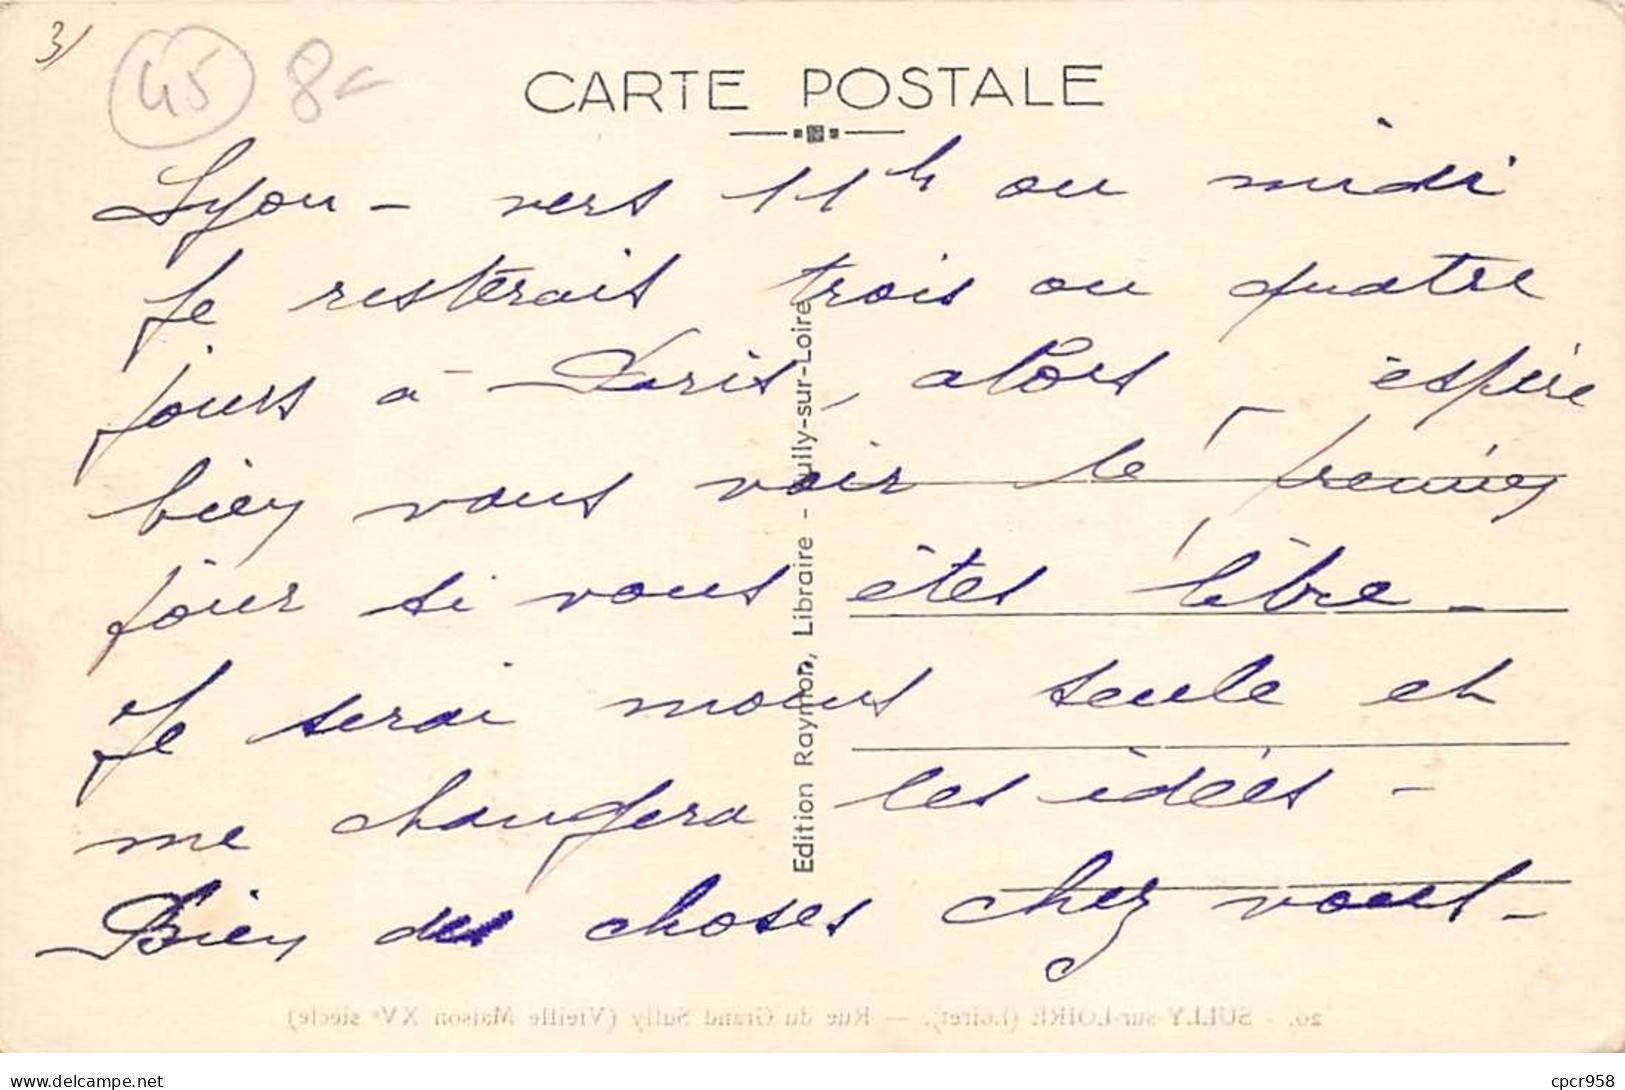 3/
45 8
CARTE POSTALE
Lyon - vers 11h ou midi
Je resterais trois ou quatre
jours à Paris, alors, espère
bien vous voir le premier
jour si vous êtes libre -
Je serai moins seule et
me changera les idées -
Bien des choses chez vous -
Edition Raymon, Libraire - Sully-sur-Loire
20. - SULLY-sur-LOIRE (Loiret). — Rue du Grand Sully (Vieille Maison XVe siècle)
delcampe.net
cpcr958